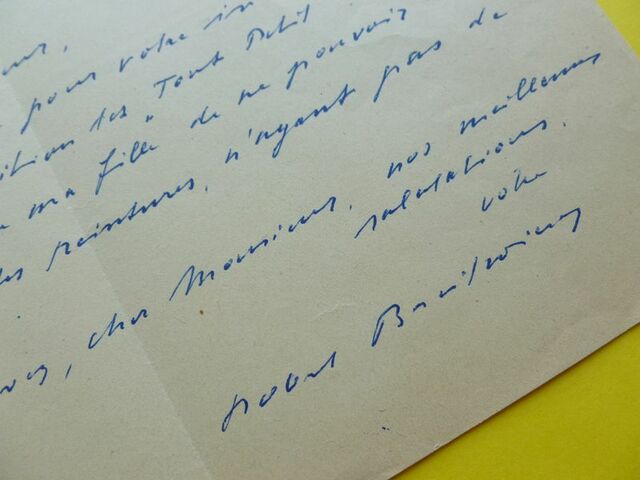 pour votre in
ition des "Tout Petit
ma fille de ne pouvoir
peintures, n'ayant pas de
cher Monsieur, nos meilleures
salutations.
votre
Robert